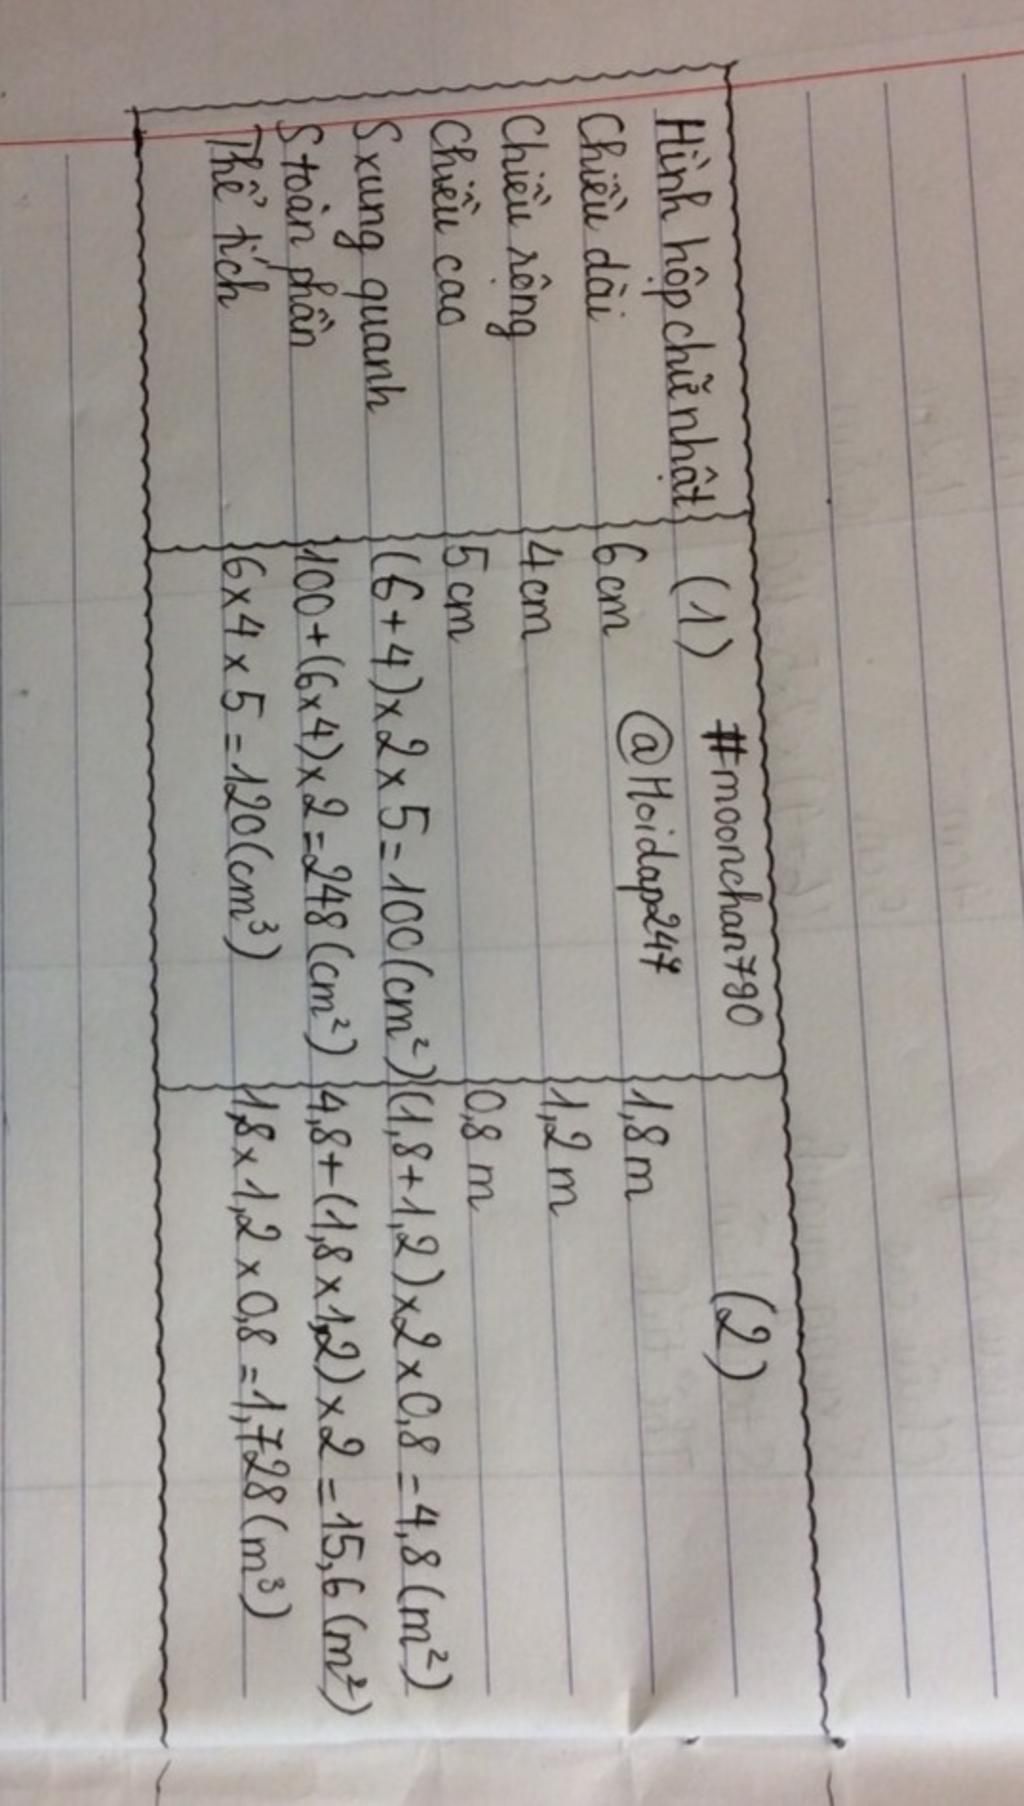 Hình hộp chữ nhật (1) #moonchan790 (2)
Chiều dài 6cm @Hoidap247 1,8m
Chiều rộng 4cm 1,2m
Chiều cao 5cm 0,8m
S xung quanh (6+4)x2x5=100(cm²) (1,8+1,2)x2x0,8=4,8(m²)
S toàn phần 100+(6x4)x2=248(cm²) 4,8+(1,8x1,2)x2=15,6(m²)
Thể tích 6x4x5=120(cm³) 1,8x1,2x0,8=1,728(m³)